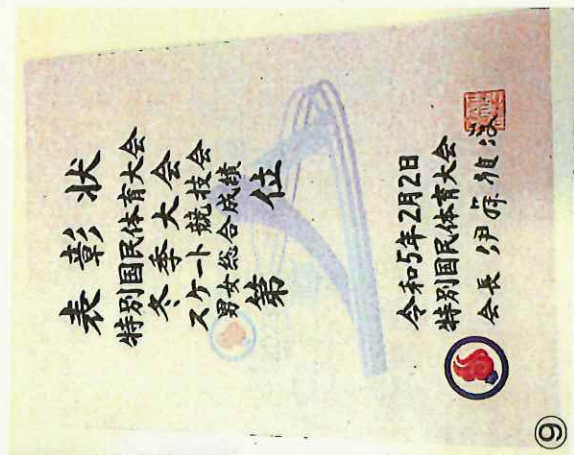 表彰状
特別国民体育大会
冬季大会
スケート競技会
男女総合成績
第　位
令和5年2月2日
特別国民体育大会
会長 伊藤雅俊
⑨